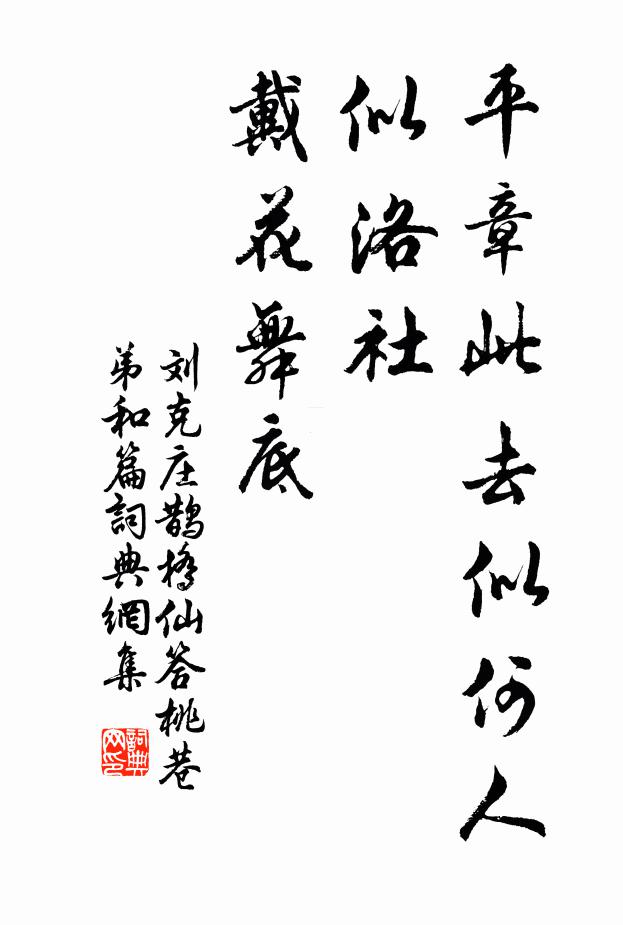 平章此去似何人
似洛社
戴花舞底
刘克庄鹊桥仙答桃巷
弟和篇词典網集
詞典
网印